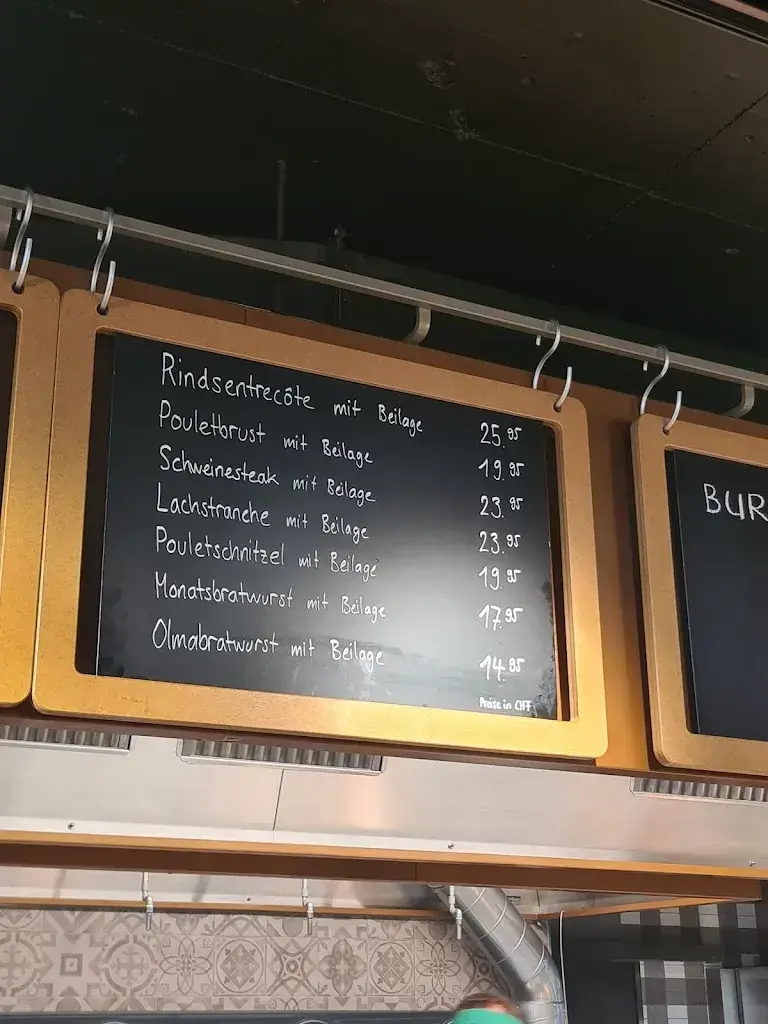 Rindsentrecôte mit Beilage 25.95
Pouletbrust mit Beilage 19.95
Schweinesteak mit Beilage 23.95
Lachstranche mit Beilage 23.95
Pouletschnitzel mit Beilage 19.95
Monatsbratwurst mit Beilage 17.95
Olmabratwurst mit Beilage 14.95
Preise in CHF
BUR